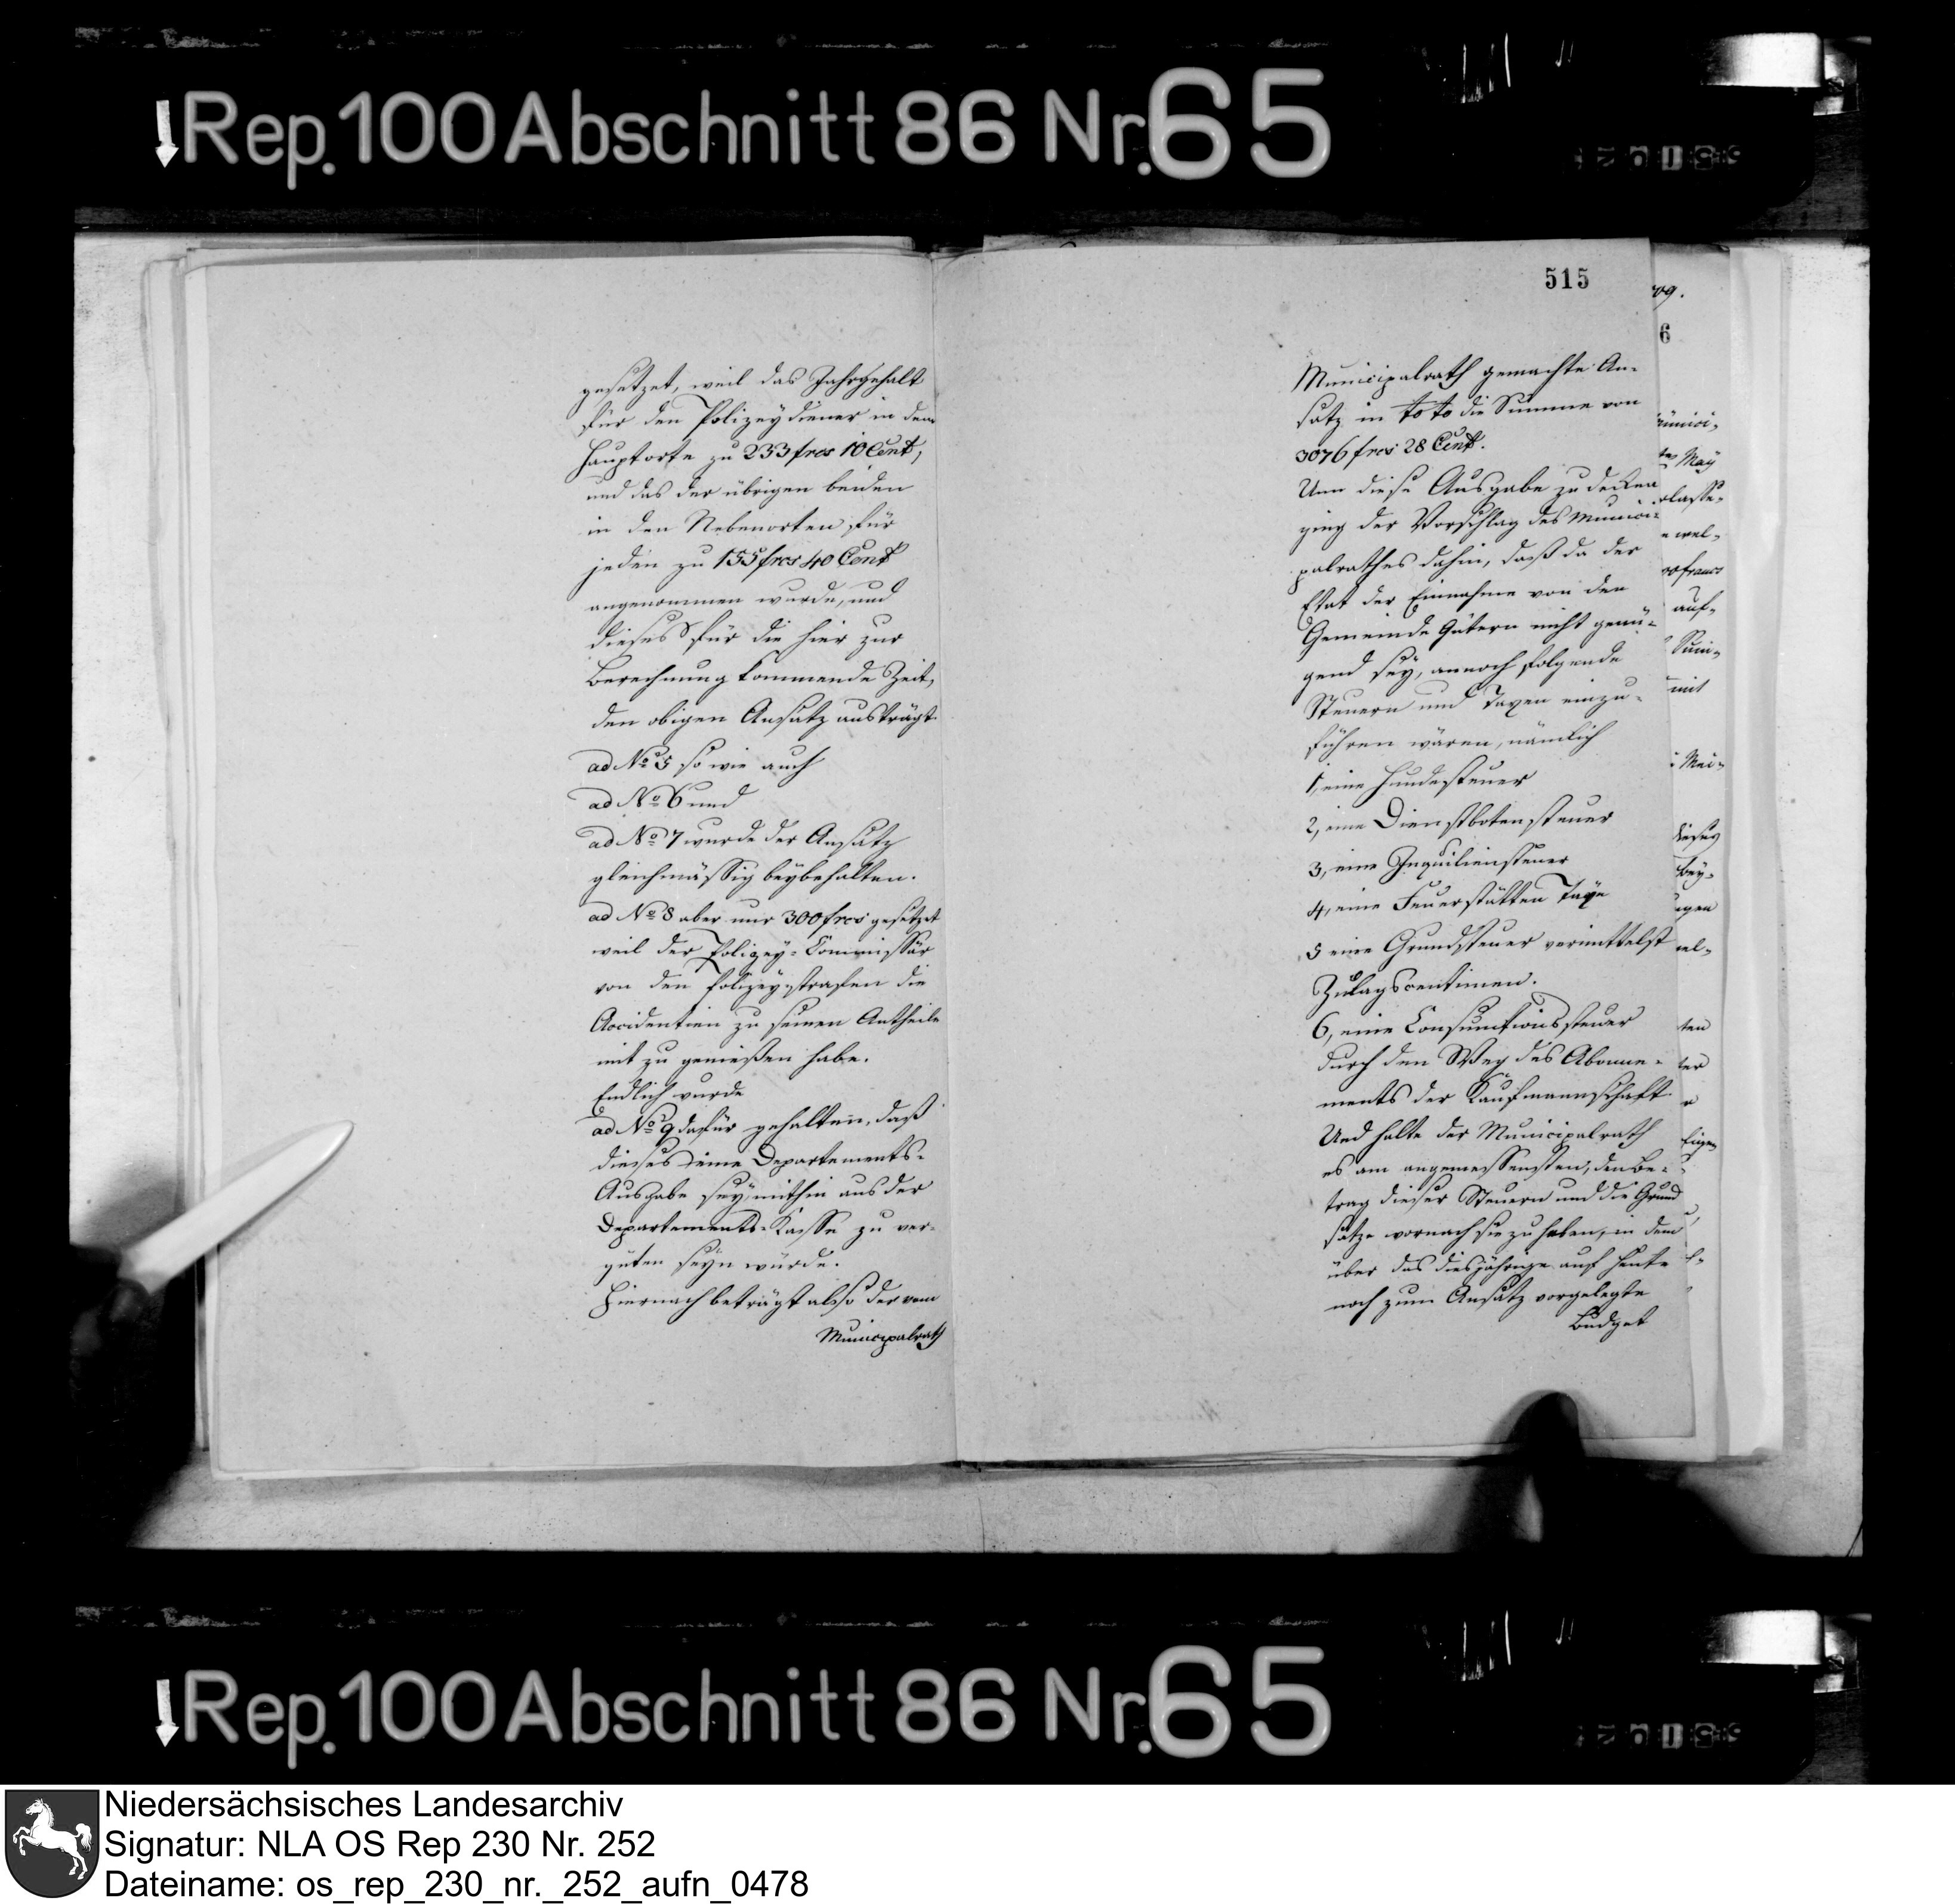 Rep. 100 Abschnitt 86 Nr. 65
gesetzet, weil das Jahrgehalt
für den Polizeydiener in dem
Hauptorte zu 233 frcs 10 Cent,
und das der übrigen beiden
in den Nebenorten für
jeden zu 155 frcs 40 Cent
angenommen wurde, und
dieses für die hier zur
Berechnung kommende Zeit,
den obigen Ansatz austrägt.
ad No 5 so wie auch
ad No 6 und
ad No 7 wurde der Ansatz
gleichmässig beybehalten.
ad No 8 aber nur 300 frcs gesetzet
weil der Polizey-Commissär
von den Polizeystrafen die
Accidentien zu seinen Antheile
mit zu genießen habe.
Endlich wurde
ad No 9 dafür gehalten, daß
dieses eine Departements-
Ausgabe sey, mithin aus der
Departements-Kasse zu ver-
güten seyn würde.
Hiernach beträgt also der vom
Municipalrath
515
Municipalrath gemachte An-
satz in toto die Summe von
3076 frcs 28 Cent.
Um diese Ausgabe zu decken
ging der Vorschlag des Munici-
palrathes dahin, daß da der
Etat der Einnahme von den
Gemeinde Gütern nicht genü-
gend sey, annoch folgende
Steuern und Taxen einzu-
führen wären, nämlich
1, eine Hundesteuer
2, eine Dienstbotensteuer
3, eine Inquiliensteuer
4, eine Feuerstätten Taxe
5 eine Grundsteuer vermittelst
Zulagscentimen.
6, eine Consumtionssteuer
durch den Weg des Abonne-
ments der Kaufmannschaft.
Und halte der Municipalrath
es am angemessensten, den Be-
trag dieser Steuern und die Grund
sätze wornach sie zu heben, in dem
über das diesjährige auf heute
noch zum Ansatz vorgelegte
Budget
6
May
wel-
francs
auf-
Sum-
mit
Mai-
dieses
bey-
ten
Rep. 100 Abschnitt 86 Nr. 65
Niedersächsisches Landesarchiv
Signatur: NLA OS Rep 230 Nr. 252
Dateiname: os_rep_230_nr._252_aufn_0478